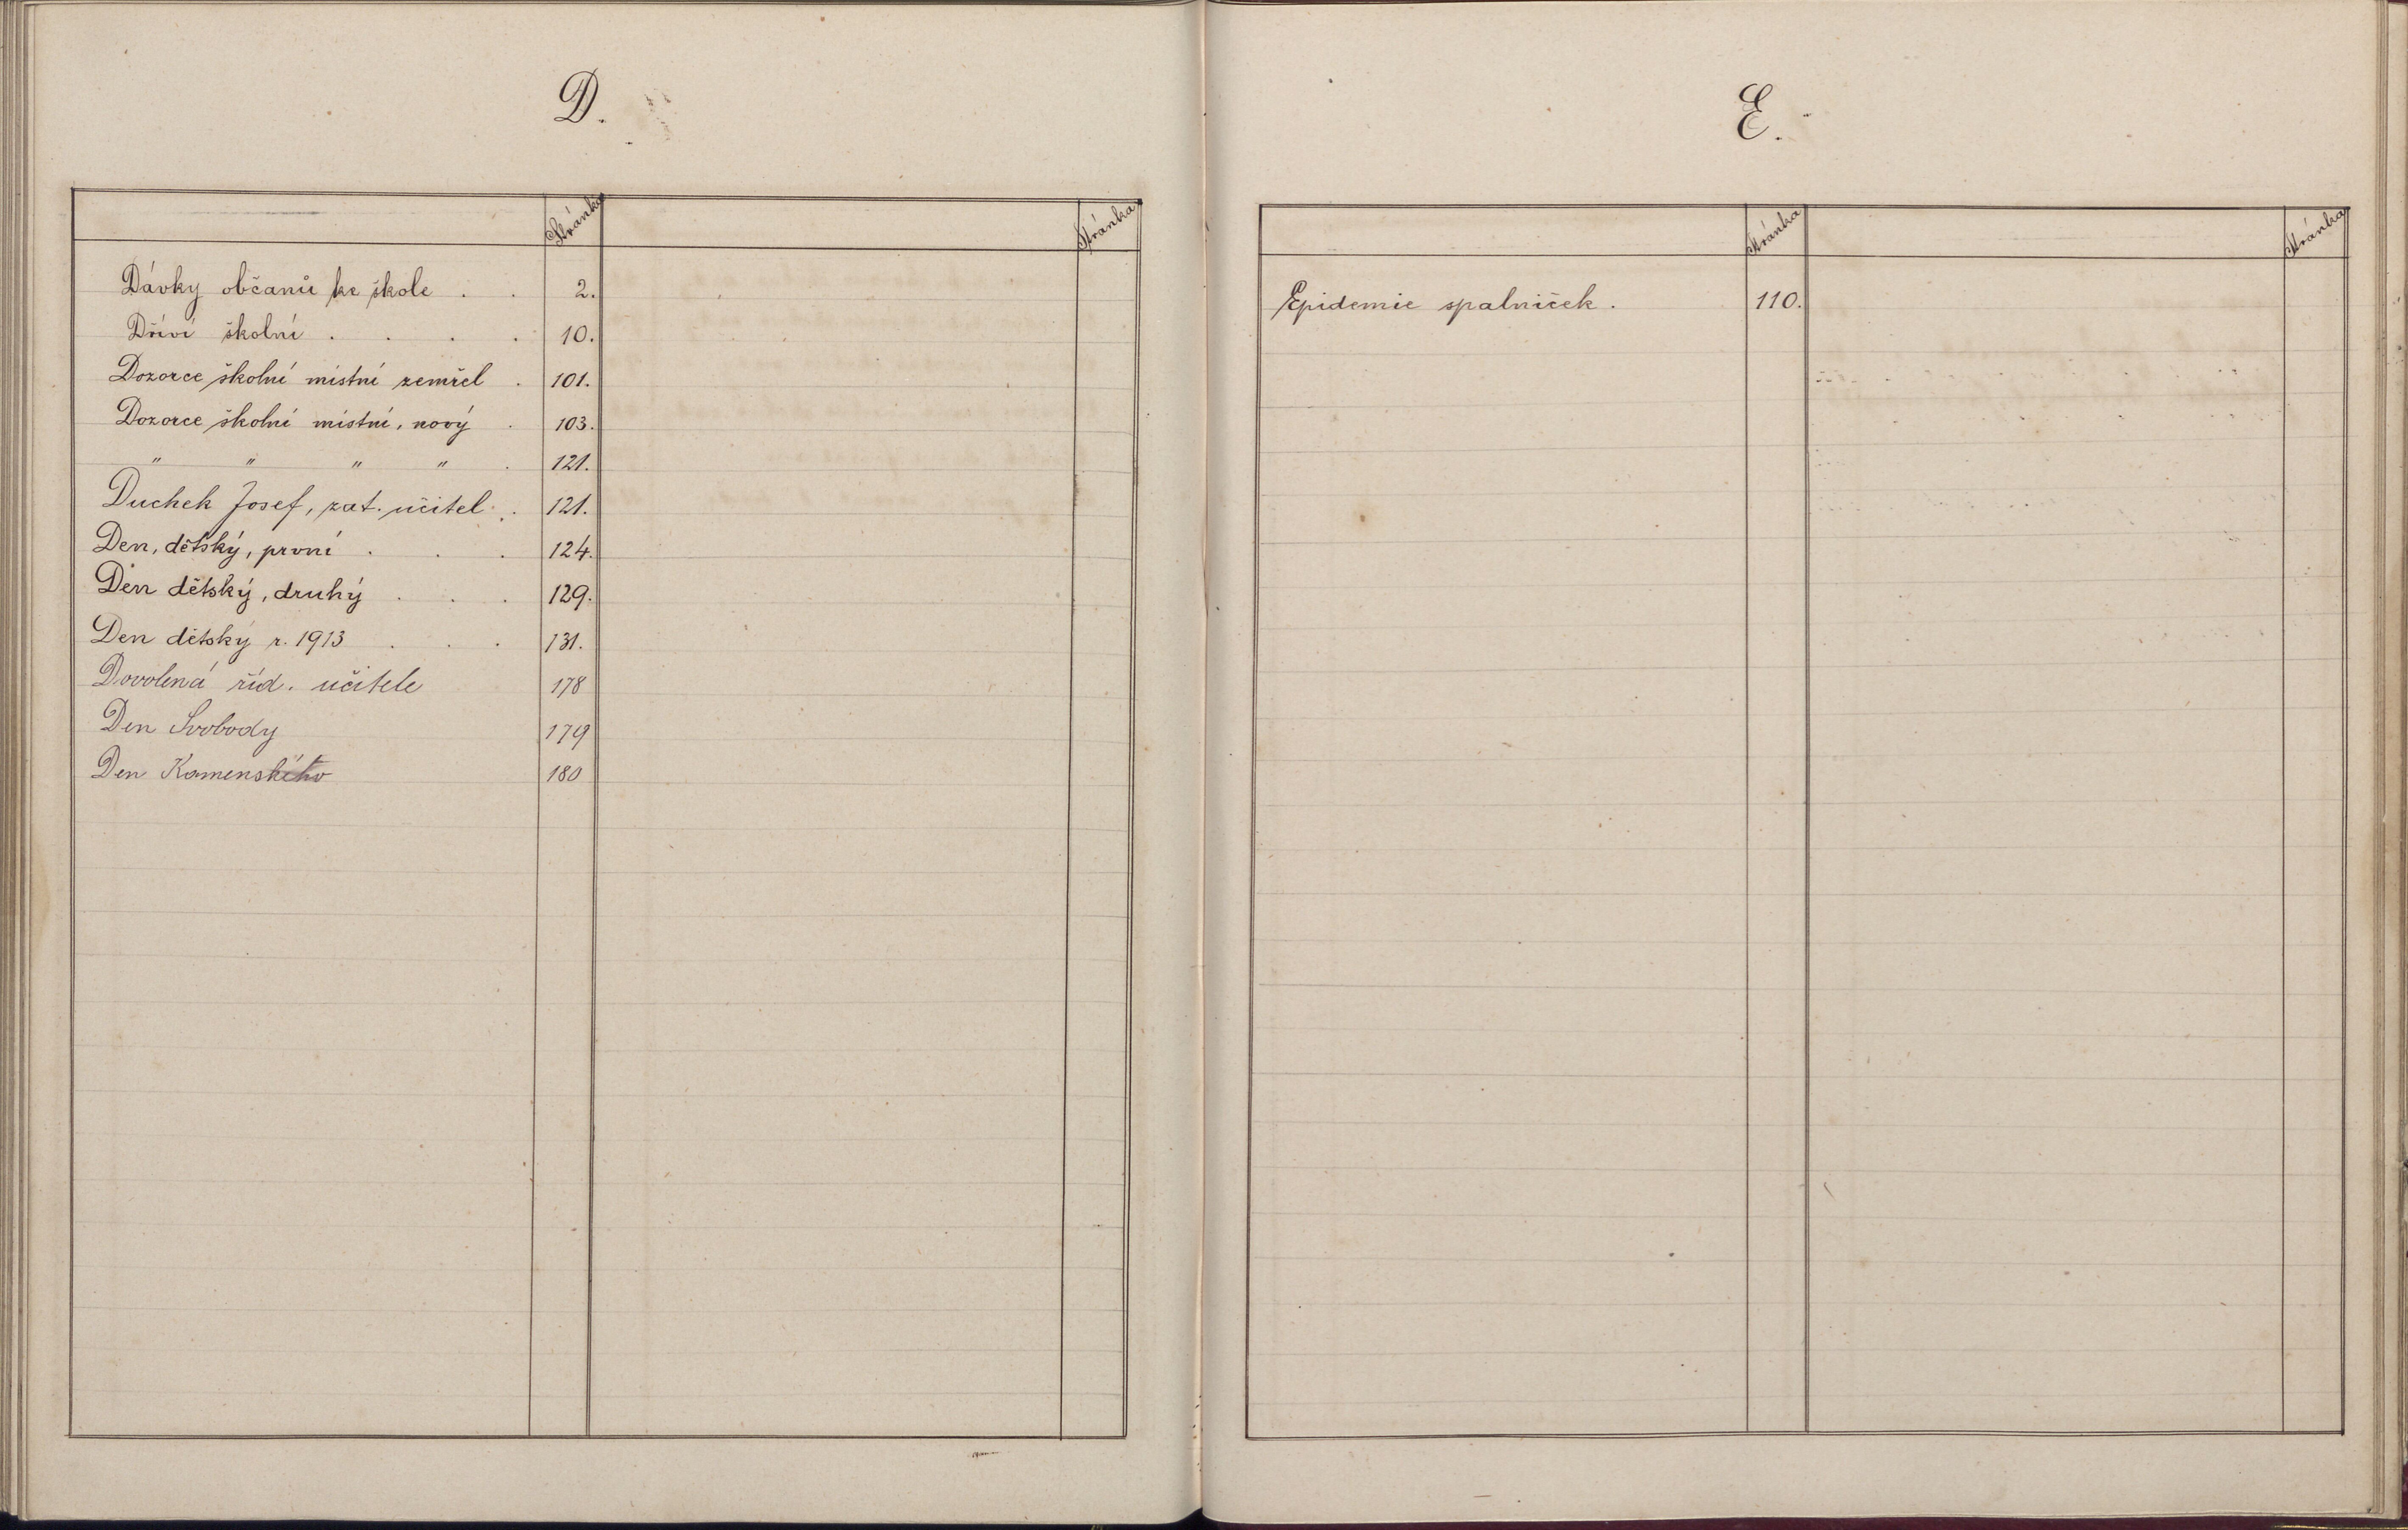 D.
Stránka
Stránka
Dávky občanů ke škole . . 2.
Dříví školní . . . . 10.
Dozorce školní místní zemřel . 101.
Dozorce školní místní, nový . 103.
" " " " . 121.
Duchek Josef, zat. učitel . 121.
Den, dětský, první . . . 124.
Den dětský, druhý . . . 129.
Den dětský r. 1913 . . . 131.
Dovolená říd. učitele 178
Den Svobody 179
Den Komenského 180
E.
Stránka
Stránka
Epidemie spalniček . 110.